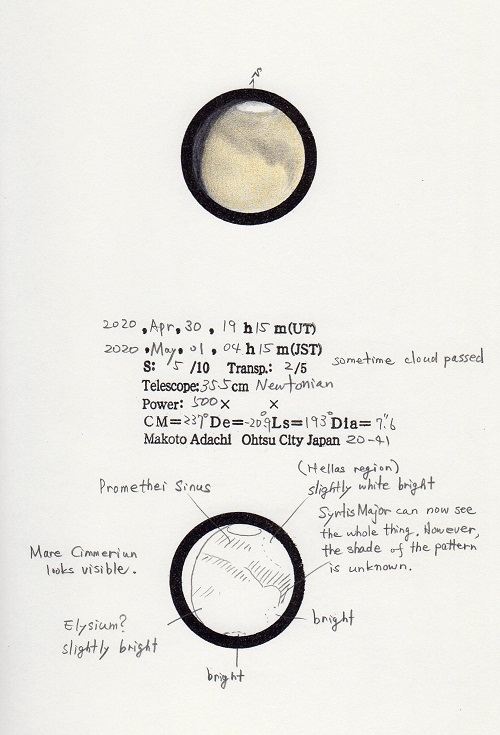 S
2020 , Apr, 30 , 19 h 15 m(UT)
2020 , May, 01 , 04 h 15 m(JST)
S: 5 /10 Transp.: 2/5 sometime cloud passed
Telescope:35.5cm Newtonian
Power: 500× ×
CM=237° De=-20.°9 Ls=193° Dia= 7."6
Makoto Adachi Ohtsu City Japan 20-41
(Hellas region)
slightly white bright
Promethei Sinus
Syrtis Major can now see
the whole thing. However,
the shade of the pattern
is unknown.
Mare Cimmeriun
looks visible.
Elysium?
slightly bright
bright
bright